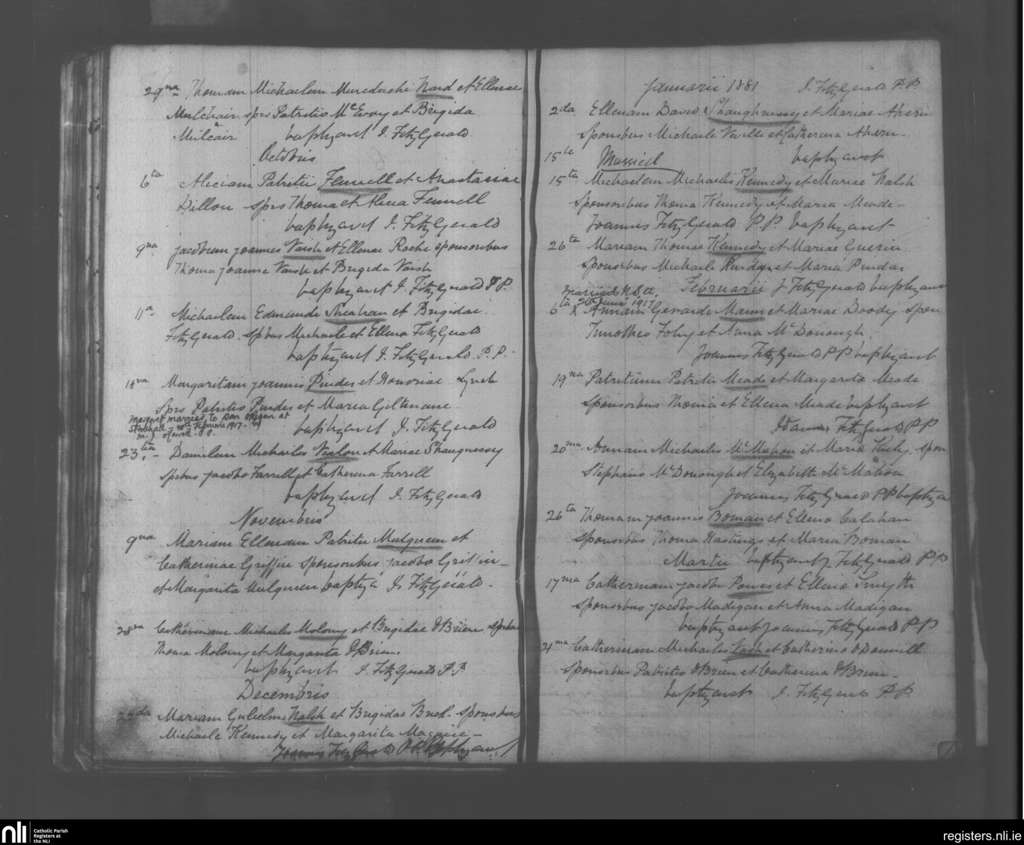 29na Thomam Michaelem Murdochi Ward et Ellenae
Mulchair spss Patritio McEvoy et Brigida
Mulcair baptizavit J. FitzGerald
Octobris
6ta Aliciam Patritii Fennell et Anastasiae
Dillon spss Thoma et Alicia Fennell
baptizavit J. FitzGerald
9na Jacobum Joannes Naish et Ellenae Roche Sponsoribus
Thoma Joanne Naish et Brigida Naish
baptizavit J. FitzGerald P.P.
11a Michaelem Edmundi Sheahan et Brigidae
FitzGerald. Spsbus Michaele et Ellena FitzGerald
baptizavit J. FitzGerald. P.P.
18va Margaritam Joannis Pindar et Honoriae Lynch
Spss Patritio Pindar et Maria Giltenane
Margaret married to
10th February 1917
baptizavit J. FitzGerald
23tia Danielem Michaelis and Mariae Shaugnessy
Spsbus Jacobo Farrell et Catherena Farrell
baptizavit J. FitzGerald
Novembris
9na Mariam Ellenam Patritii Mulqueen et
Catherinae Griffin Sponsoribus Jacobo Griffin
et Margarita Mulqueen baptiz. J. FitzGerald.
28va Catherinam Michaelis Molony et Brigidae O'Brien
Thoma Molony et Margarita O'Brien.
baptizavit J. FitzGerald P.P.
Decembris
Mariam Gulielmi Walsh et Brigidae Sponsoribus
Michaele Kennedy et Margarita
Joannes FitzGerald P.P. baptizavit
Januarii 1881 J. FitzGerald P.P.
2da Ellenam David Shaughnessy et Mariae Ahern
Sponsibus Michaele Neville et Catherena Ahern
15ta Married baptizavit
15ta Michaelem Michaelis Kennedy et Mariae Walsh
Sponsoribus Thoma Kennedy et Maria Meade
Joannes FitzGerald P.P. baptizavit
26ta Mariam Thomae Kennedy et Mariae Guerin
Sponsibus Michaele et Maria Pindar
Februarii J FitzGerald baptizavit
Married
June 1917
6ta Annam Gerardi Mann et Mariae Doody Spon
Timotheo Foley et Anna McDonough.
Joannes FitzGerald PP baptizavit
19na Patritium Patritii Meade et Margarita Meade
Sponsoribus Thoma et Ellena Meade baptizavit
Joannes FitzGerald PP
20ma Annam Michaelis McMahon et Maria Spon
Stephano McDonough et Elizabetha McMahon
Joannes FitzGerald PP baptizav
26ta Thomam Joannis Boman et Ellena Calahan
Sponsoribus Thoma Hastings et Maria Boman
Martii baptizavit J FitzGerald PP
17ma Catherinam Jacobi Power et Ellena Smyth
Sponsibus Jacobo Madigan et Anna Madigan
baptizavit Joannes FitzGerald PP
21ma Catherinam Michaelis et Catherina O'Donnell
Sponsoribus Patritio O'Brien et Catherena O'Brien
baptizavit J. FitzGerald PP
nli Catholic Parish
Registers at
the NLI
registers.nli.ie